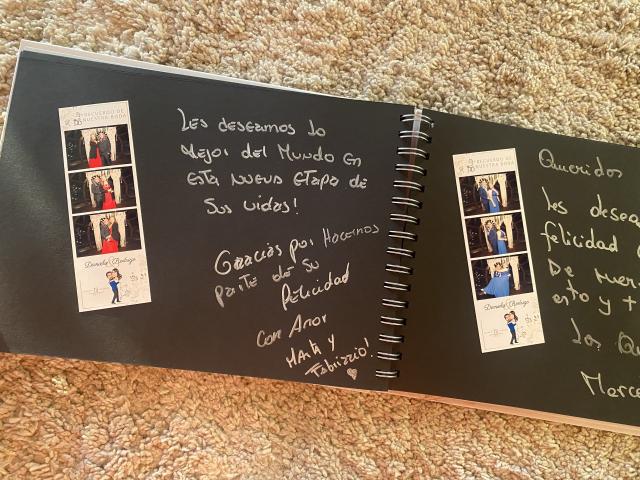 RECUERDO DE
NUESTRA BODA
Daniela & Rodrigo
Les deseamos lo
Mejor del Mundo en
esta nueva etapa de
sus vidas!
Gracias por Hacernos
parte de su
felicidad
con Amor
Marta y
Fabrizzio!
RECUERDO DE
NUESTRA BODA
Daniela & Rodrigo
Queridos
les desea
felicidad
De nues
esto y t
Los Qu
Merce